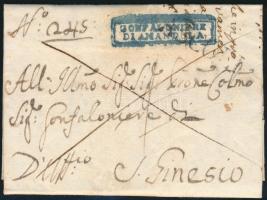 N.° 245
GONFALONIERE
DI AMANDOLA
All' Illmo Sig. Sig. Prone Colmo
Sig. Gonfaloniere di
D'Uffio
S. Ginesio